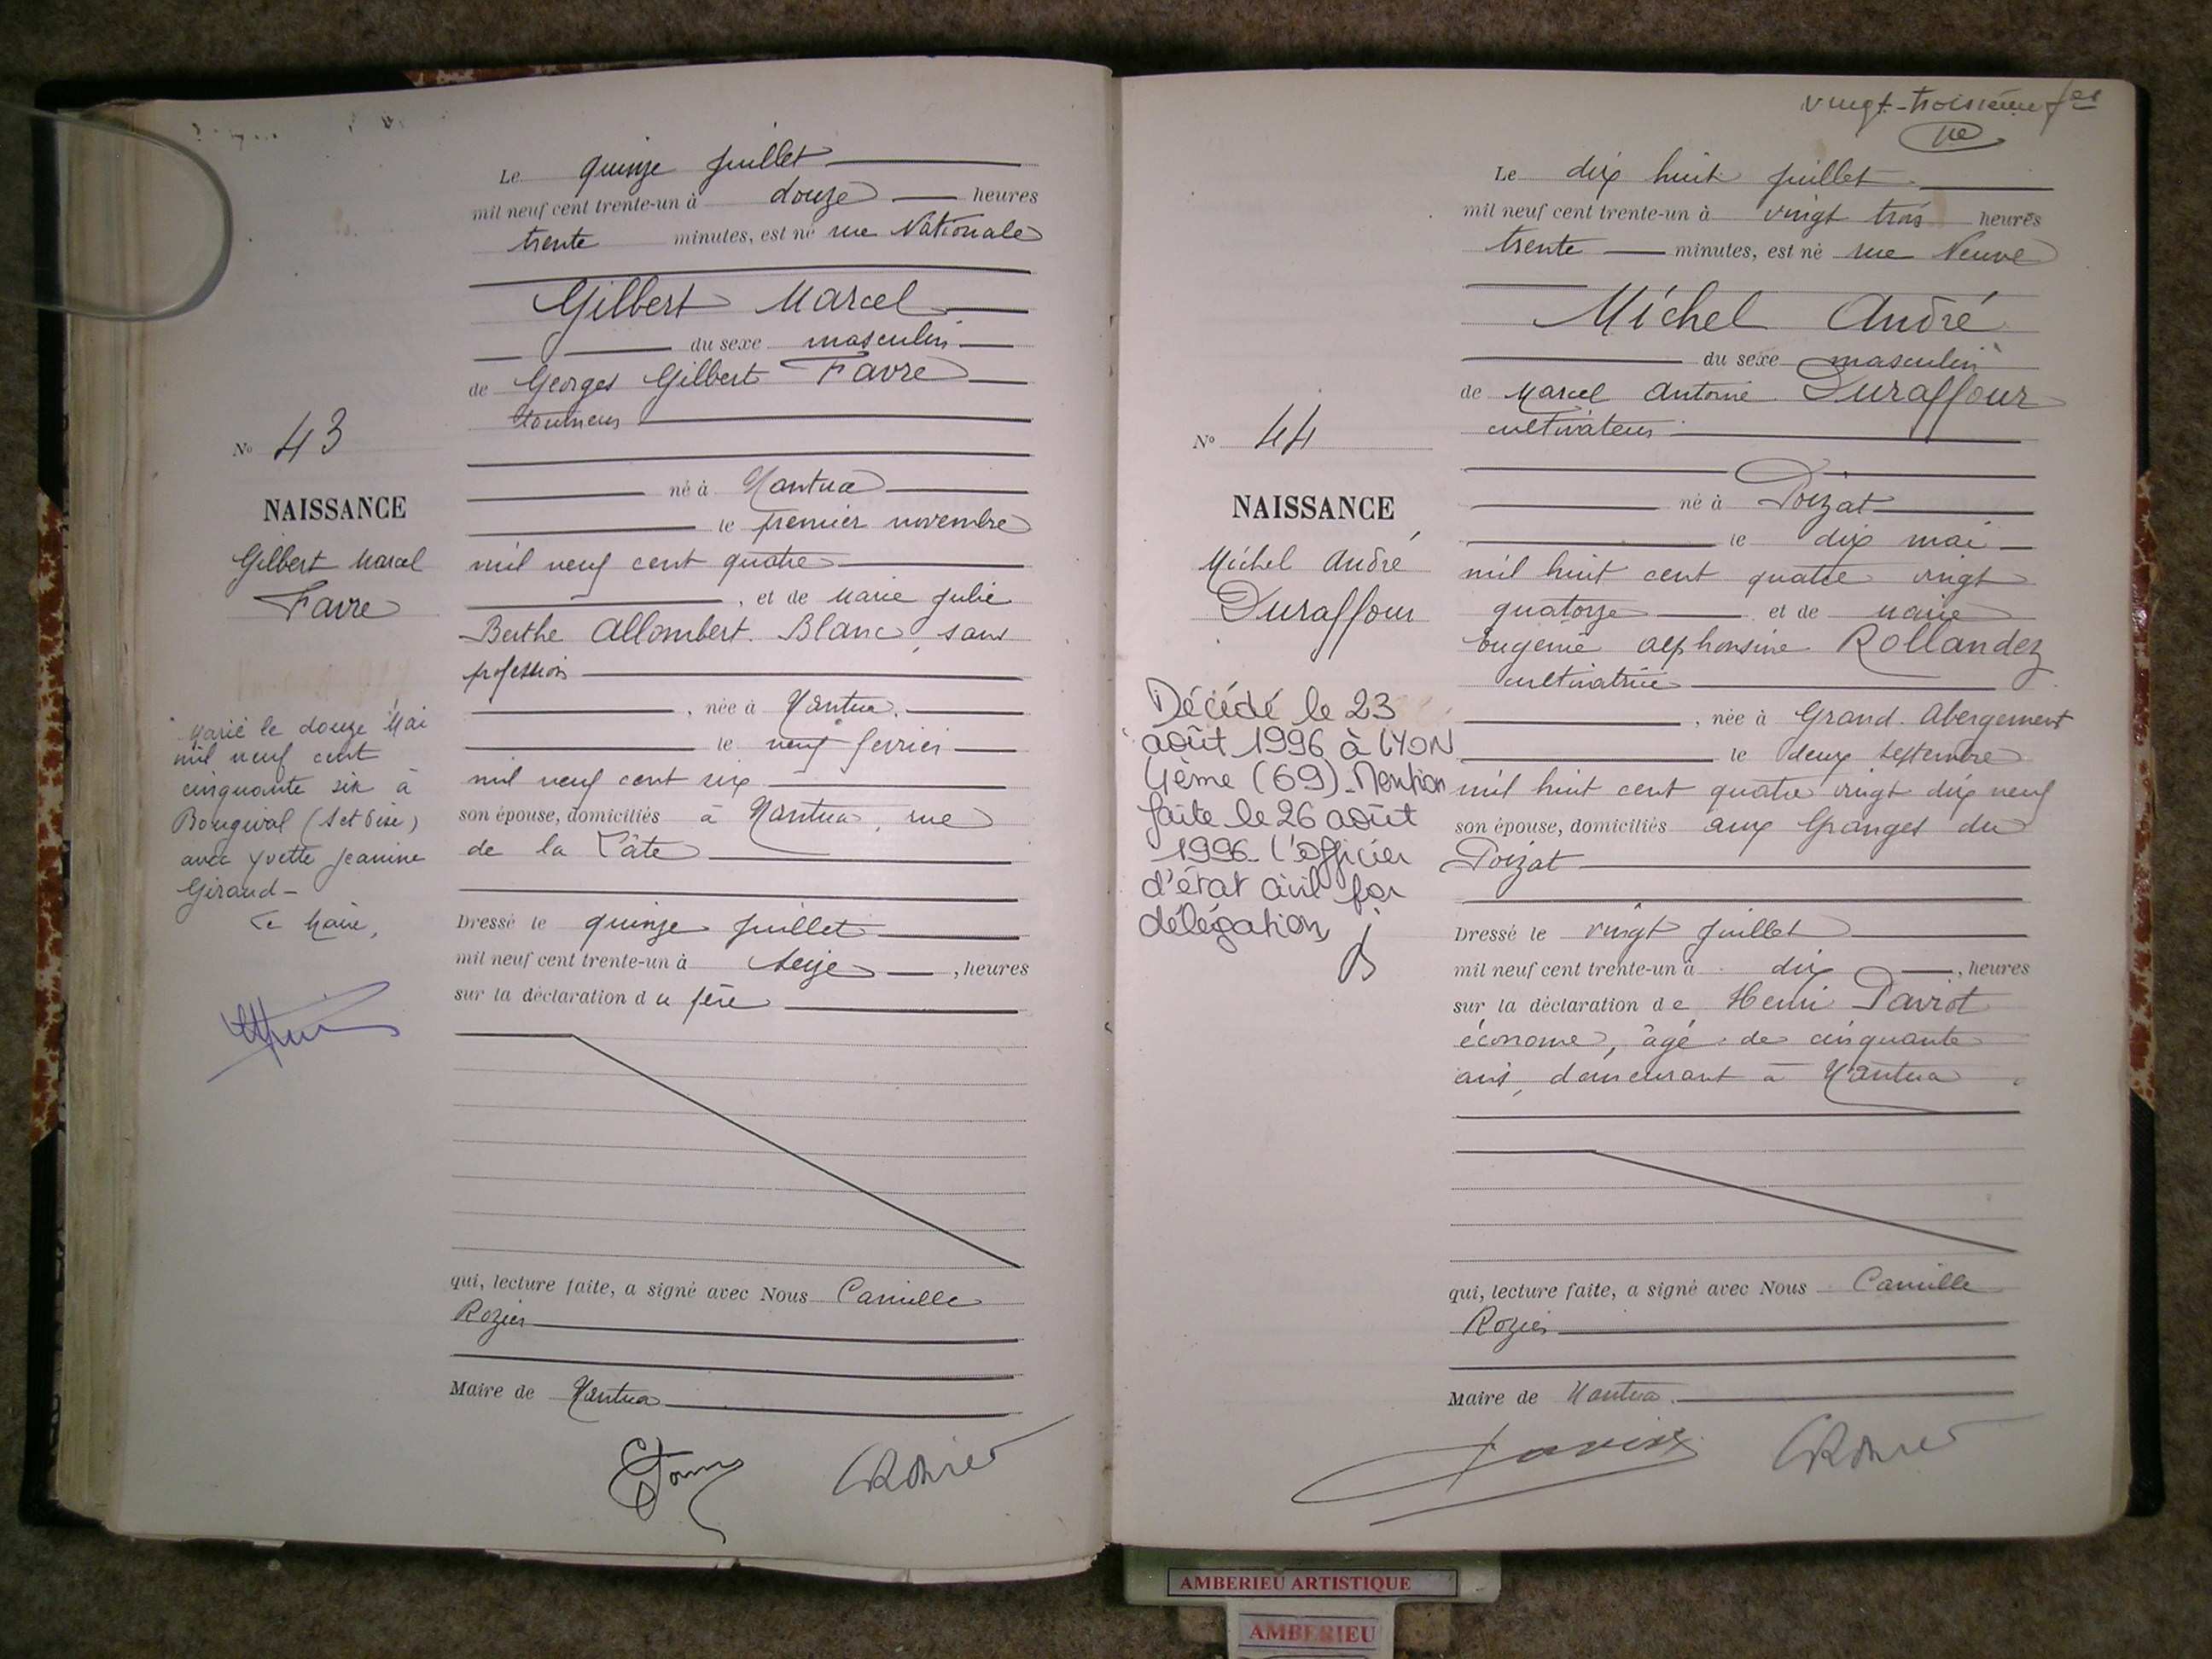 Le quinze juillet
mil neuf cent trente-un à douze heures
trente minutes, est né rue Nationale
Gilbert Marcel
du sexe masculin
de Georges Gilbert Favre
tourneur
né à Nantua
le premier novembre
mil neuf cent quatre
, et de Marie Julie
Berthe Allombert-Blanc, sans
profession
, née à Nantua.
le neuf février
mil neuf cent six
son épouse, domiciliés à Nantua, rue
de la
Dressé le quinze juillet
mil neuf cent trente-un à seize, heures
sur la déclaration du père
qui, lecture faite, a signé avec Nous Camille
Rozier
Maire de Nantua
No 43
NAISSANCE
Gilbert Marcel
Favre
Marié le douze Mai
mil neuf cent
cinquante six à
Bougival (Set Oise)
avec Yvette Jeanine
Giraud-
Le Maire,
vingt-troisième
Le dix huit juillet
mil neuf cent trente-un à vingt trois heures
trente minutes, est né rue Neuve
Michel André
du sexe masculin
de Marcel Antoine Duraffour
cultivateur
né à Poizat
le dix mai
mil huit cent quatre vingt
quatorze et de Marie
Eugénie Alphonsine Rollandez
cultivatrice
, née à Grand-Abergement
le deux septembre
mil huit cent quatre vingt dix neuf
son épouse, domiciliés aux Granges du
Poizat
Dressé le vingt juillet
mil neuf cent trente-un à dix, heures
sur la déclaration de Henri Paviot
économe, âgé de cinquante
ans, demeurant à Nantua
qui, lecture faite, a signé avec Nous Camille
Rozier
Maire de Nantua.
No 44
NAISSANCE
Michel André
Duraffour
Décédé le 23
août 1996 à LYON
4ème (69). Mention
faite le 26 août
1996. L'officier
d'état civil par
délégation,
AMBERIEU ARTISTIQUE
AMBERIEU